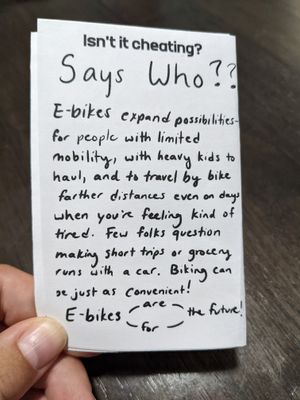 Isn't it cheating?
Says Who??
E-bikes expand possibilities-
for people with limited
mobility, with heavy kids to
haul, and to travel by bike
farther distances even on days
when you're feeling kind of
tired. Few folks question
making short trips or grocery
runs with a car. Biking can
be just as convenient!
E-bikes are the future!
for